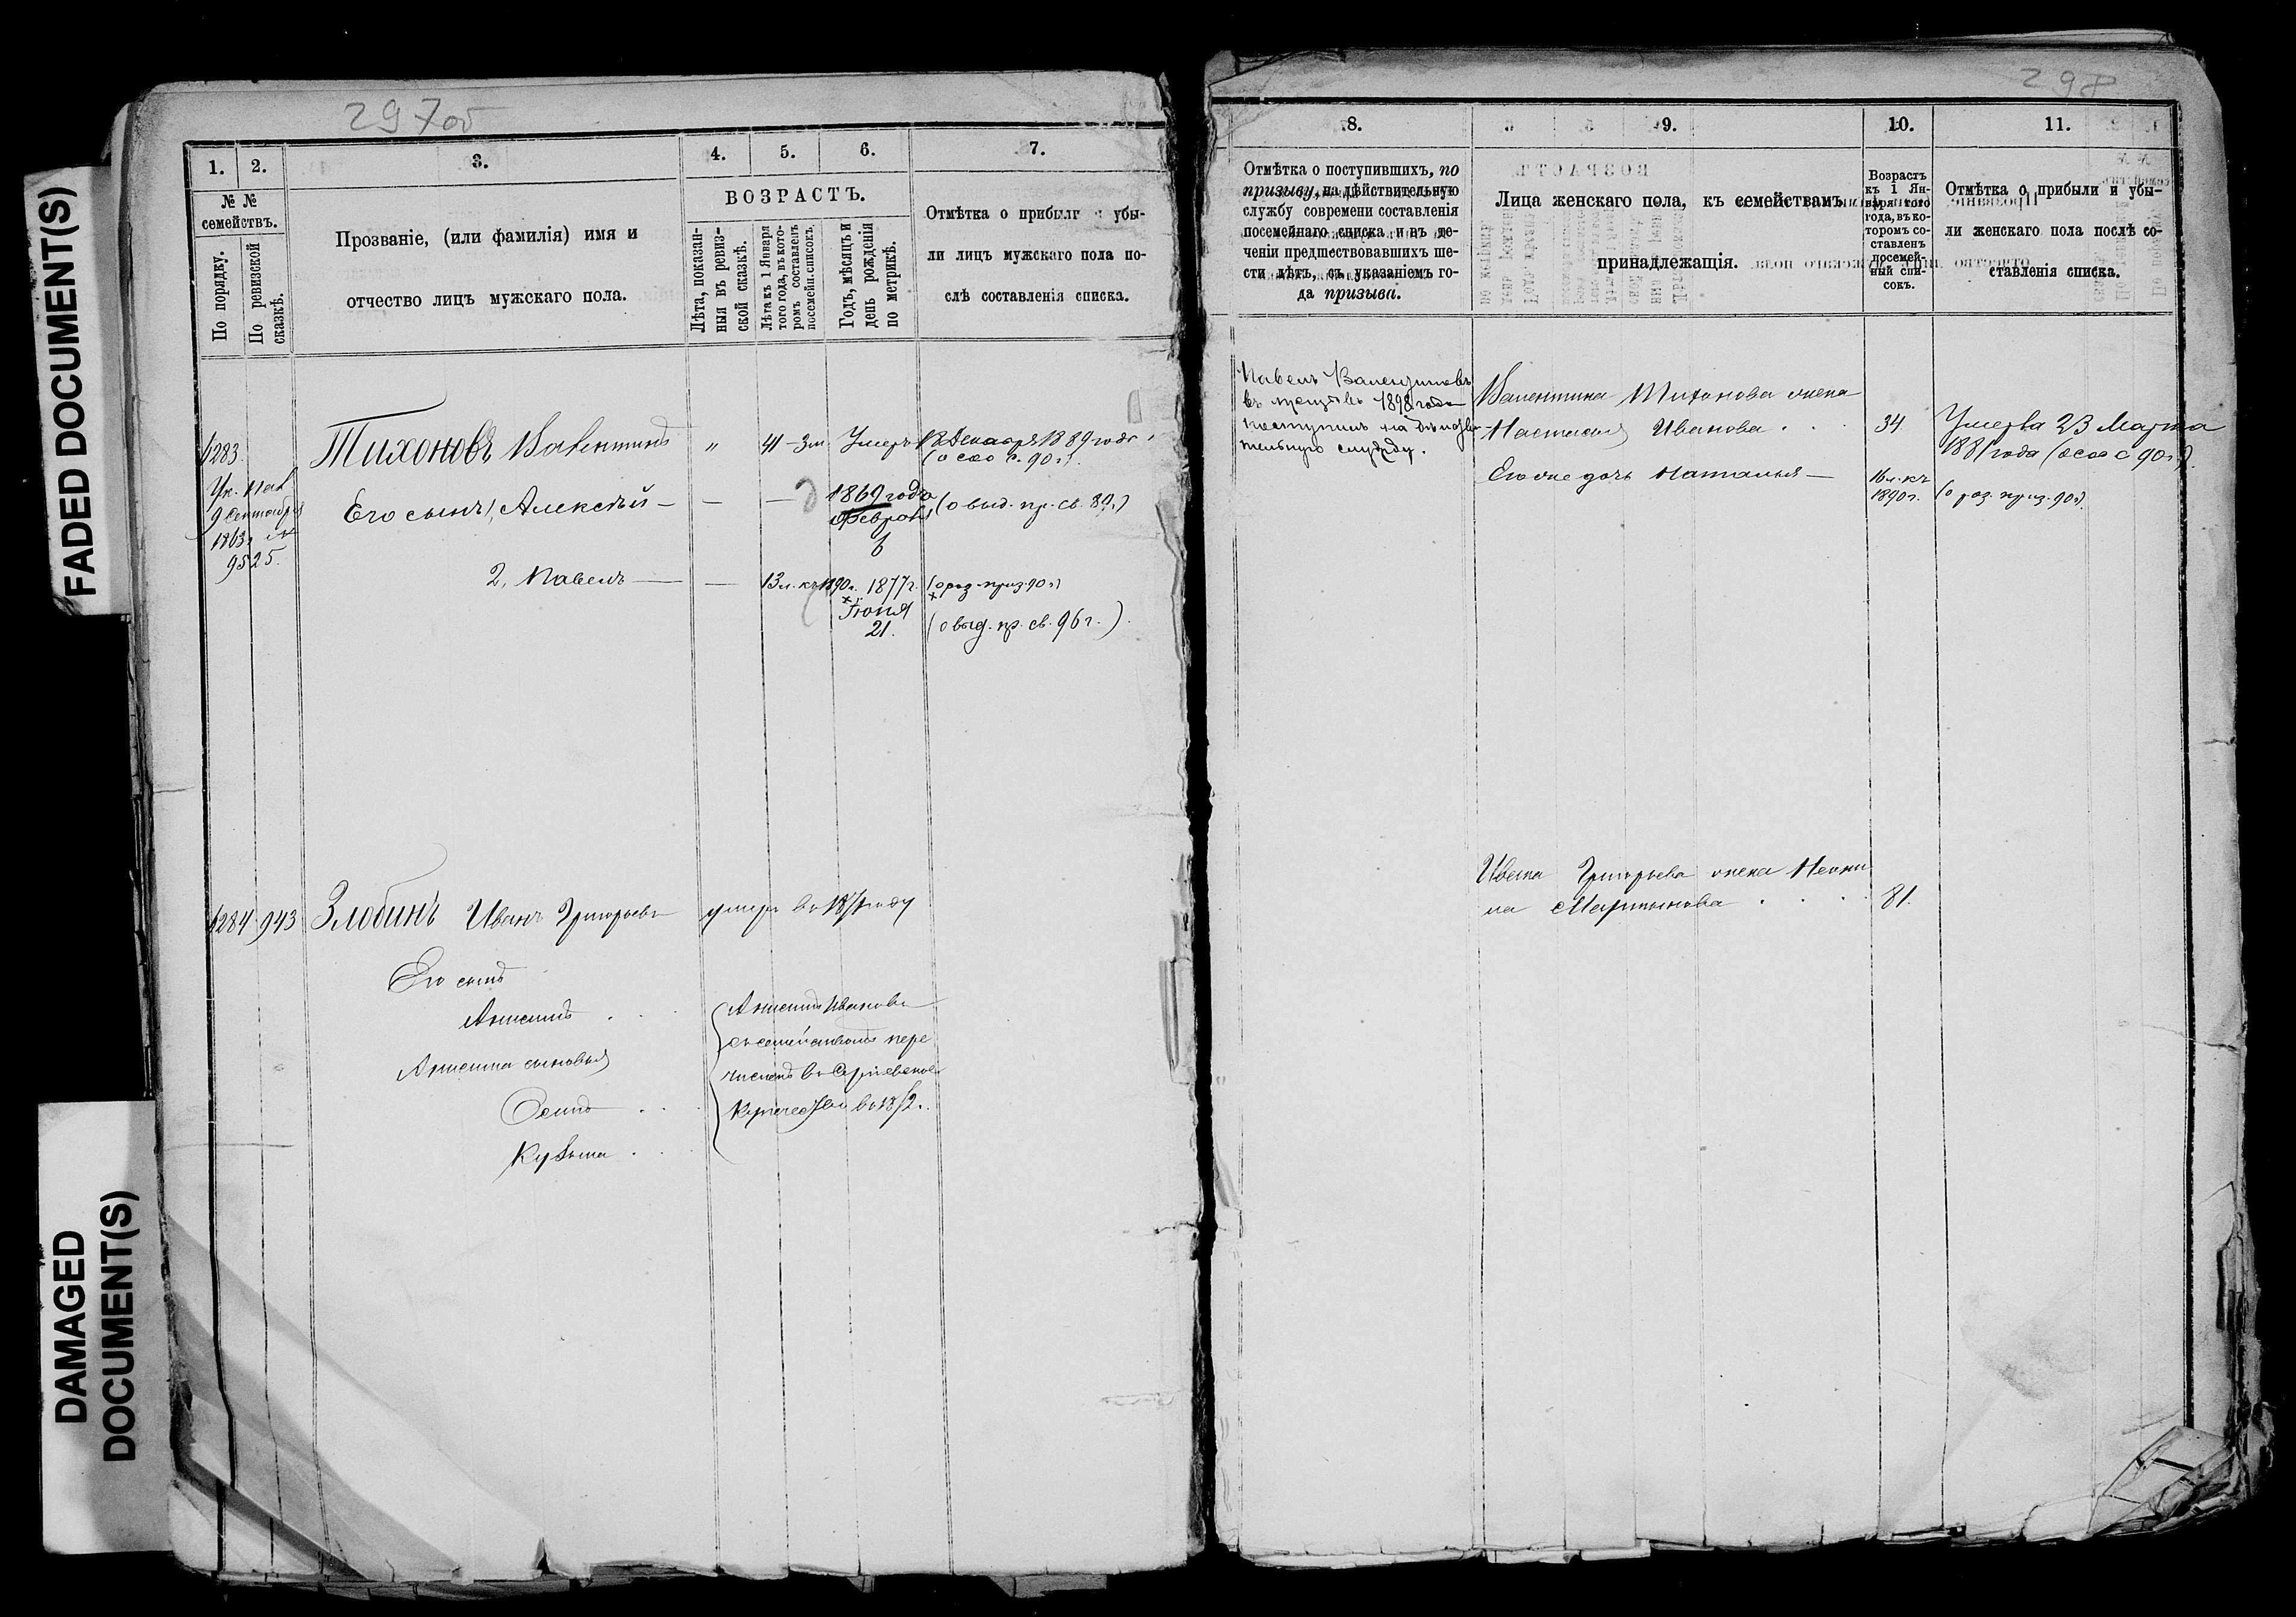 FADED DOCUMENT(S)
DAMAGED
DOCUMENT(S)
297об
1. 2. 3. 4. 5. 6. 7.
№ №
семействъ.
По порядку.
По ревизской
сказкѣ.
Прозваніе, (или фамилія) имя и
отчество лицъ мужскаго пола.
ВОЗРАСТЪ.
Лѣта, показан-
ныя въ ревиз-
ской сказкѣ.
Лѣта къ 1 Января
того года, въ кото-
ромъ составленъ
посемейн. списокъ.
Годъ, мѣсяцъ и
день рожденія
по метрикѣ.
Отмѣтка о прибыли и убы-
ли лицъ мужскаго пола по-
слѣ составленія списка.
1283.
Ук. Пал
9 Сентября
1863г №
9525.
Тихоновъ Валентинъ " 41-3м Умеръ 18 Декабря 1889 года
(о сос с. 90 г.).
Его сынъ 1, Алексѣй — — — 1869 года (о выд. пр. св. 89 г.)
Февраля
6
2, Павелъ — — 13 л. къ 1890 г. 1877 г. (о раз. приз. 90 г)
Іюня
21. (о выд. пр. св. 96 г.).
1284 943 Злобинъ Иванъ Григорьевъ умеръ въ 1871 году
Его сынъ
Антипъ
Антипа сыновья
Осипъ
Кузьма
Антипъ Ивановъ
съ семействомъ пере
численъ въ Сергіевское
Купечество въ 1872 г.
298
8. 9. 10. 11.
Отмѣтка о поступившихъ, по
призыву, на дѣйствительную
службу современи составленія
посемейнаго списка и въ те-
ченіи предшествовавшихъ ше-
сти лѣтъ, съ указаніемъ го-
да призыва.
Лица женскаго пола, къ семействамъ
принадлежащія.
Возрастъ
къ 1 Ян-
варя того
года, въ ко-
торомъ со-
ставленъ
посемей-
ный спи-
сокъ.
Отмѣтка о прибыли и убы-
ли женскаго пола послѣ со-
ставленія списка.
Павелъ Валентиновъ
въ призывъ 1898 года
поступилъ на дѣйстви
тельную службу.
Валентина Тихонова жена
Настасья Иванова . . 34. Умерла 23 Марта
1881 года (о сос с 90 г.).
Его же дочь Наталья — 16 л. къ
1890 г. (о раз. приз. 90 г).
Ивана Григорьева жена Неони
ла Мартынова . . . . 81.